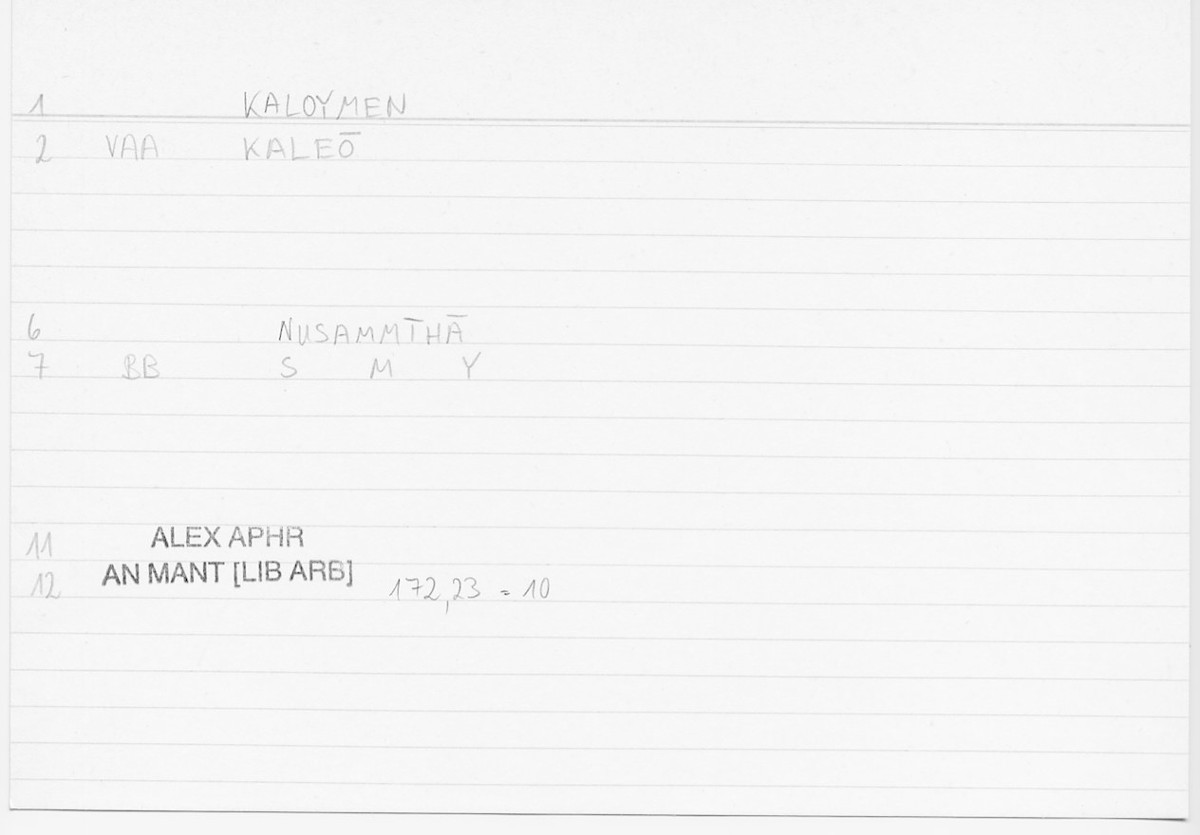 1 KALOYMEN
2 VAA KALEŌ
6 NUSAMMĪHĀ
7 BB S M Y
11 ALEX APHR
12 AN MANT [LIB ARB] 172,23 = 10